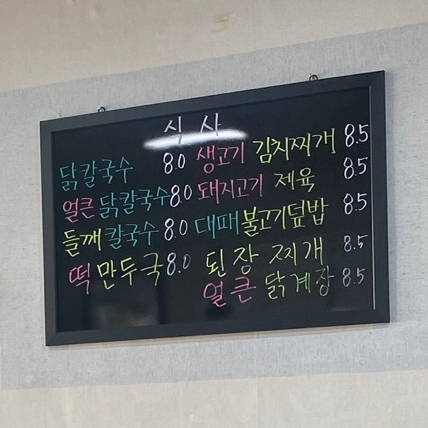 식사
닭칼국수 8.0
얼큰 닭칼국수 8.0
들깨 칼국수 8.0
떡만두국 8.0
생고기 김치찌개 8.5
돼지고기 제육 8.5
대패불고기덮밥 8.5
된장찌개 8.5
얼큰 닭계장 8.5